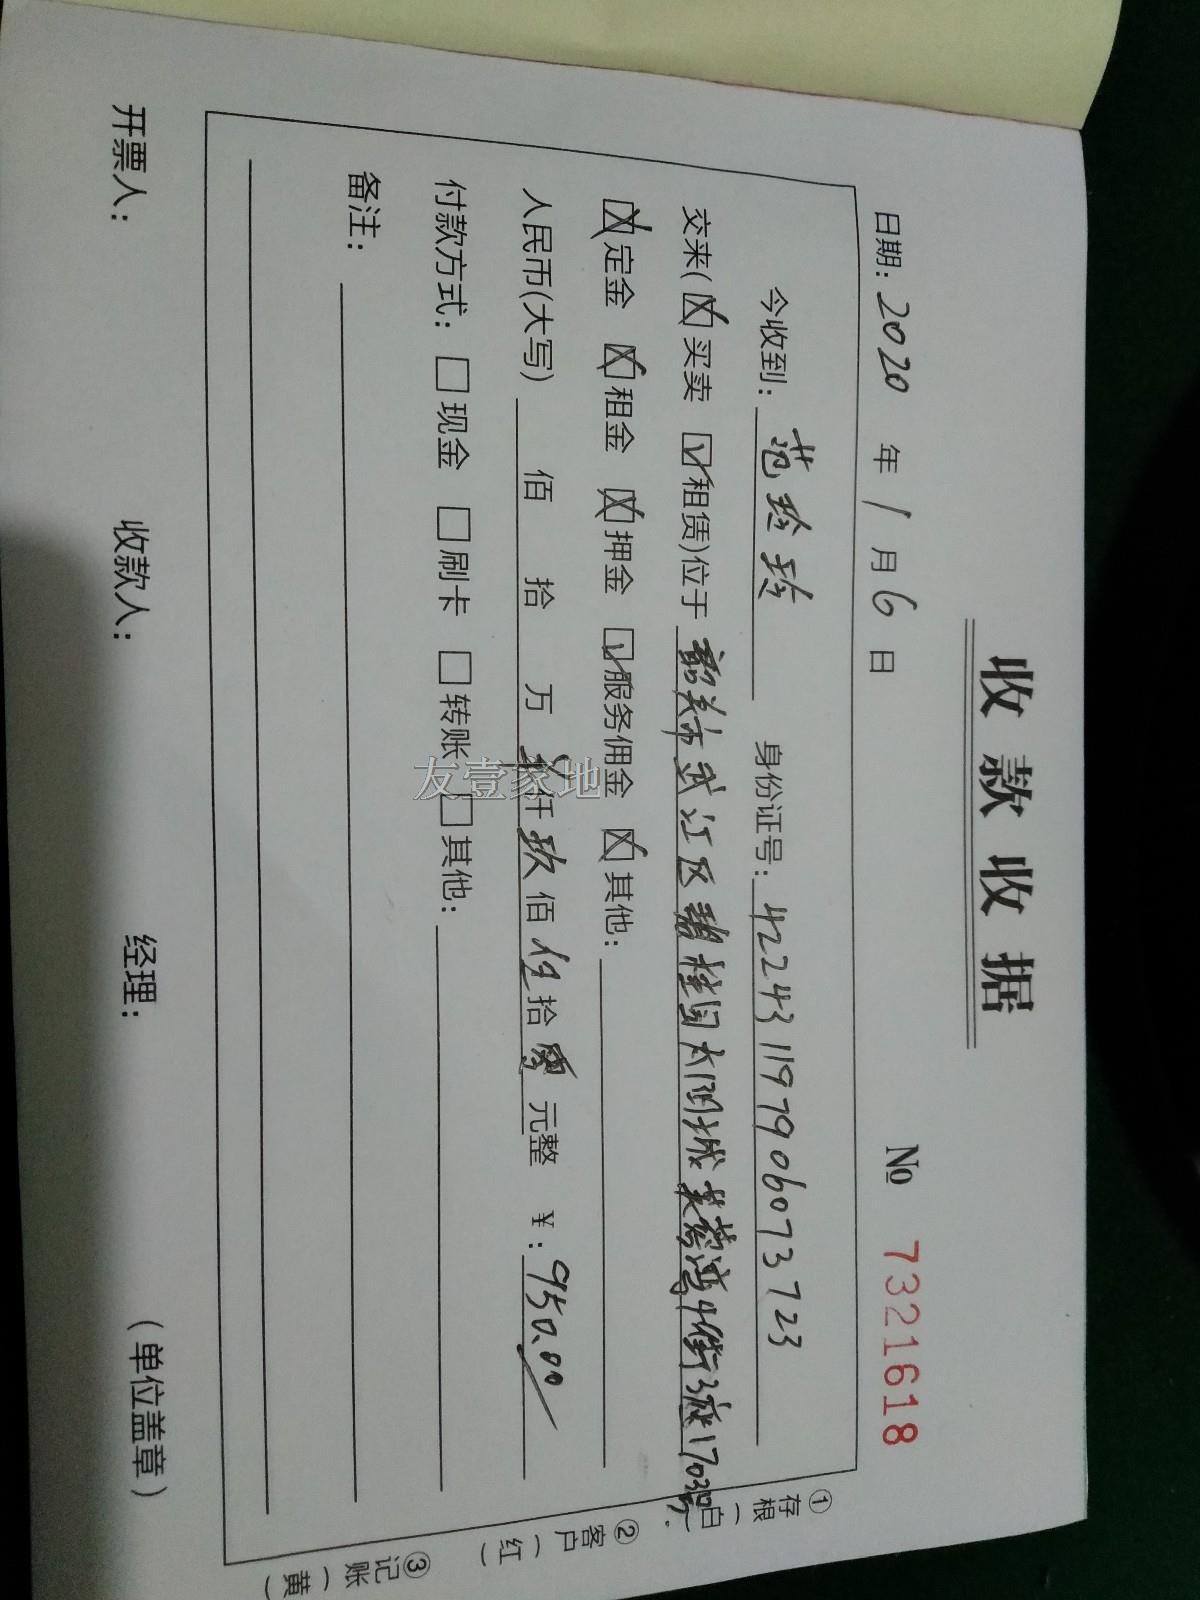 收款收据
№ 7321618
日期：2020 年 1 月 6 日
今收到：范玲玲 身份证号：422431197906073723
交来(☒买卖 ☑租赁)位于 韶关市武江区碧桂园太阳城芙蓉湾十街3座1703号
☒定金 ☒租金 ☒押金 ☑服务佣金 ☒其他：
人民币(大写) 佰 拾 万 仟 玖 佰 伍 拾 零 元整 ¥：950.00
付款方式：□现金 □刷卡 □转账 □其他：
备注：
开票人： 收款人： 经理： (单位盖章)
①存根(白) ②客户(红) ③记账(黄)
友壹家地